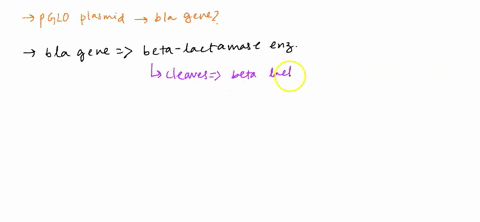 → pGLO plasmid → bla gene?
→ bla gene => beta-lactamase enz.
↳ cleaves => beta lac